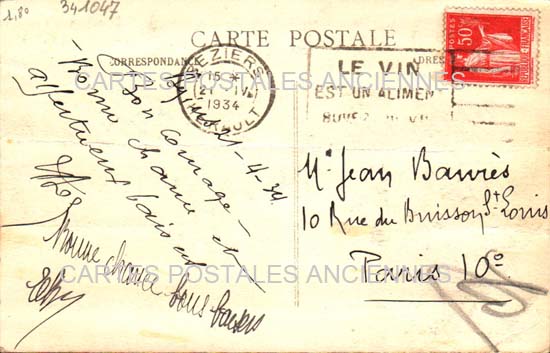 1,80
341047
CARTE POSTALE
CORRESPONDANCE
BEZIERS
15 H
21 IV
1934
HERAULT
LE VIN
EST UN ALIMENT
BUVEZ DU VIN
POSTES
50c
REPUBLIQUE FRANÇAISE
CARTES POSTALES ANCIENNES
4-34
Bon courage -
Bonne chance et
affectueux baisers
Bonne chance bons baisers
Mr Jean Bauriès
10 Rue du Buisson St Louis
Paris 10e
CARTES POSTALES ANCIENNES